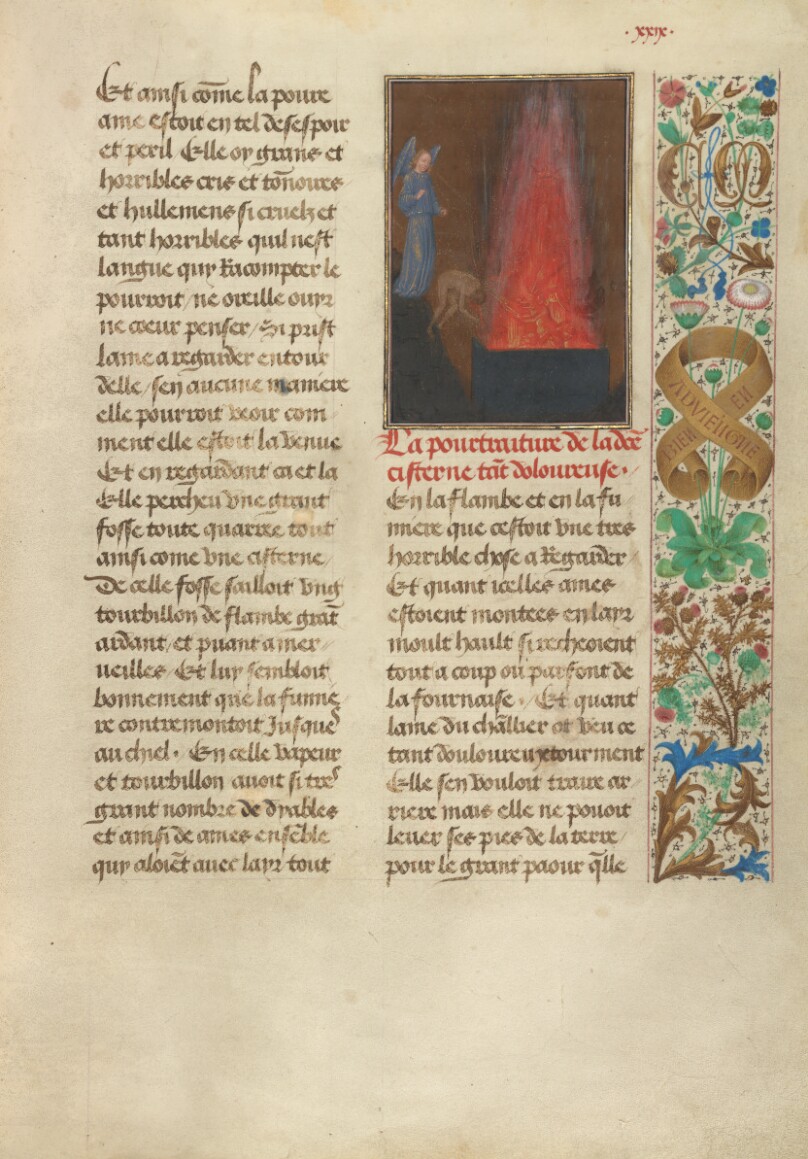 .xxix.
Et ainsi cōme la poure
ame estoit en tel desespoir
et peril Elle oy grans et
horribles cris et tōnoires
et hullemens si cruelz et
tant horribles quil nest
langue quy Racompter le
pourroit / ne oreille ouyr
ne coeur penser / Si prist
lame a regarder entour
delle / sen aucune maniere
elle pourroit veoir com
ment elle estoit la venue
Et en regardant ca et la
Elle percheu vne grant
fosse toute quarree tout
ainsi come vne cisterne
De celle fosse sailloit vng
tourbillon de flambe grāt
ardant / et puant a mer
ueilles Et luy sembloit
bonnement que la fumie
re contremontoit Jusques
au chiel . En celle vapeur
et tourbillon auoit si tres
grant nombre de dyables
et ainsi de ames ensēble
quy aloiēt auec layr tout
La pourtraiture de la dce
cisterne tāt doloureuse .
En la flambe et en la fu
miere que cestoit vne tres
horrible chose a Regarder
Et quant icelles ames
estoient montees en layr
moult hault si recheoient
tout a coup ou parfont de
la fournaise . Et quant
lame du chlīer ot veu ce
tant douloureux tourment
Elle sen vouloit traire ar
riere mais elle ne pouoit
leuer ses pies de la terre
pour le grant paour q̄lle
CM
BIEN
EN
ADVIENGNE